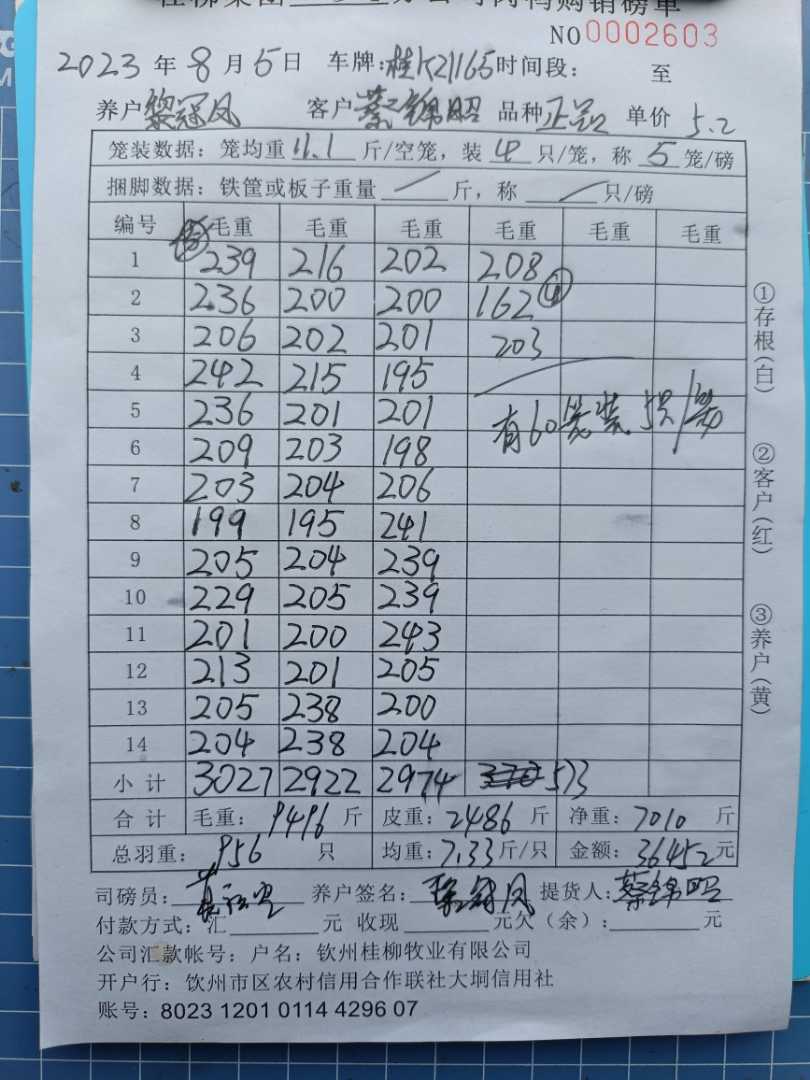 NO 0002603
2023 年 8 月 5 日 车牌:桂K21165 时间段: 至
养户 黎冠凤 客户 蔡锦昭 品种 单价 5.2
笼装数据: 笼均重 11.1 斤/空笼, 装 4 只/笼, 称 5 笼/磅
捆脚数据: 铁筐或板子重量 / 斤, 称 / 只/磅
编号 毛重 毛重 毛重 毛重 毛重 毛重
1 239 216 202 208
2 236 200 200 162 ④
3 206 202 201 203
4 242 215 195
5 236 201 201 有60笼装5只/笼
6 209 203 198
7 203 204 206
8 199 195 241
9 205 204 239
10 229 205 239
11 201 200 243
12 213 201 205
13 205 238 200
14 204 238 204
小计 3027 2922 2974 573
合计 毛重: 9496 斤 皮重: 2486 斤 净重: 7010 斤
总羽重: 956 只 均重: 7.33 斤/只 金额: 36452 元
司磅员: 养户签名: 黎冠凤 提货人: 蔡锦昭
付款方式: 汇 元 收现 元欠(余): 元
公司汇款帐号: 户名: 钦州桂柳牧业有限公司
开户行: 饮州市区农村信用合作联社大垌信用社
账号: 8023 1201 0114 4296 07
①存根(白)
②客户(红)
③养户(黄)